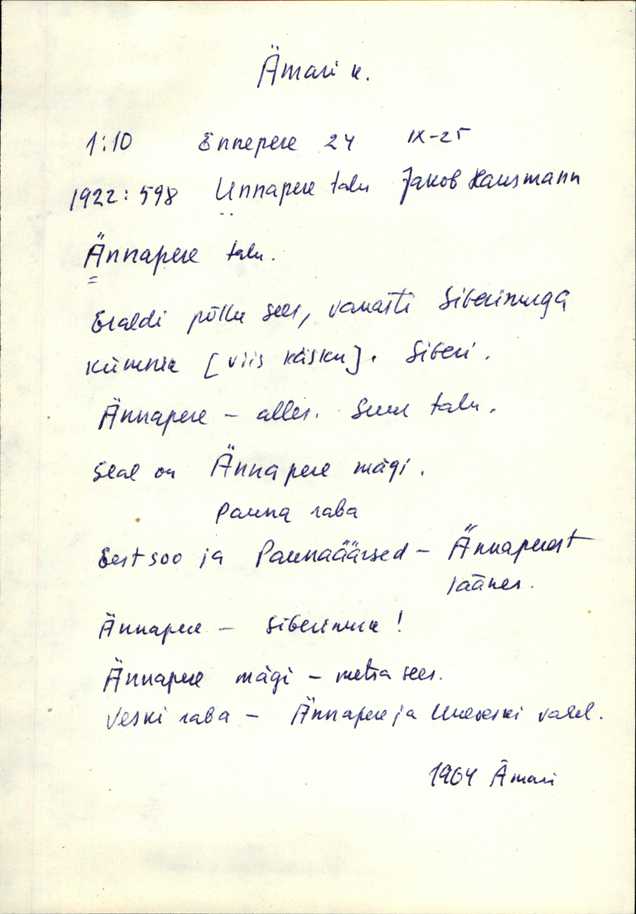 Ämari k.
1:10 Ennepere 24 IX-25
1922: 598 Unnapere talu Jakob Hausmann
Ännapere talu.
Eraldi põllu sees, vanasti Siberinurga
külmnk [viis käsku]. Siberi.
Ännapere – alles. Suur talu.
Seal on Ännapere mägi.
Pauna raba
Eest soo ja Paunaäärsed – Ännaperest
lääner.
Ännapere – Siberinurk!
Ännapere mägi – metsa sees.
Veski raba – Ännapere ja Uueveski vahel.
1964 Ämari